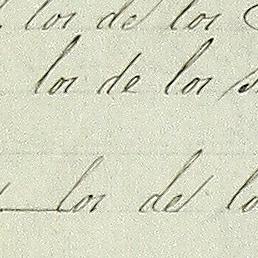 los de los
los de los
los del lo